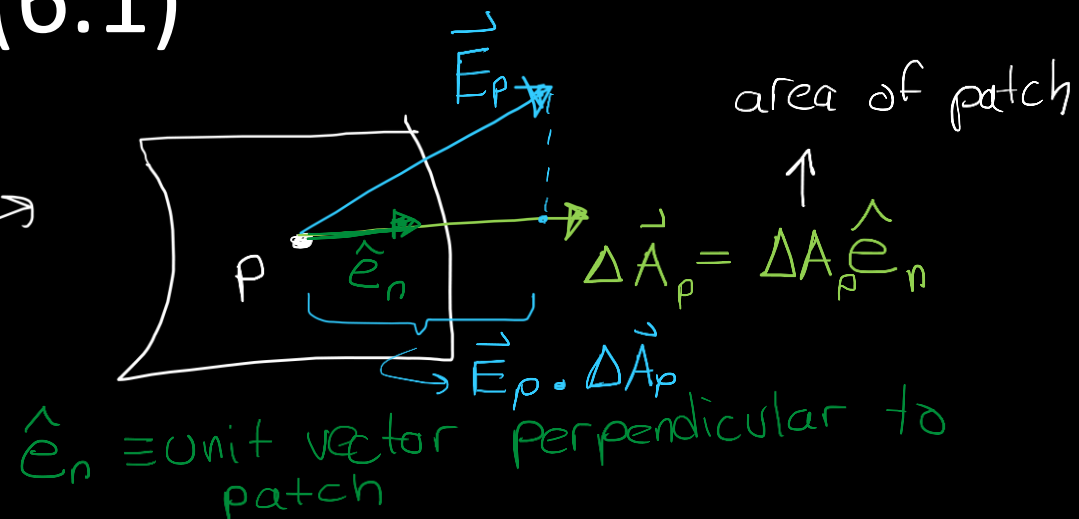 (6.1)
E⃗ₚ
area of patch
P
ê_n
ΔA⃗ₚ = ΔAₚ ê_n
E⃗ₚ • ΔA⃗ₚ
ê_n ≡ unit vector perpendicular to
patch